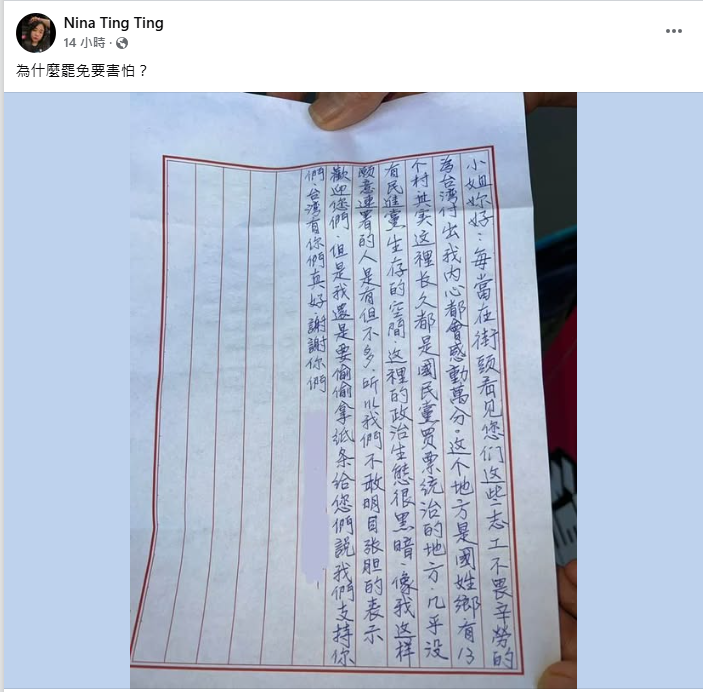 Nina Ting Ting
14 小時
為什麼罷免要害怕？
小姐妳好：每當在街頭看见您们这些志工不畏辛勞的
為台湾付出我内心都會感動萬分。这个地方是國姓鄉有13
个村．其実这裡长久都是國民黨買票統治的地方．几乎没
有民進黨生存的空間．这裡的政治生態很黑暗．像我这样
願意連署的人是有但不多．所以我們不敢明目张胆的表示
歡迎您們．但是我還是要偷偷拿紙条给您們說我們支持你
們．台湾有你們真好．謝謝你們